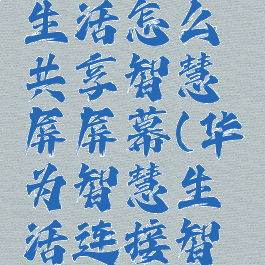 生活怎么
共享智慧
屏屏幕(华
为智慧生
活连接智